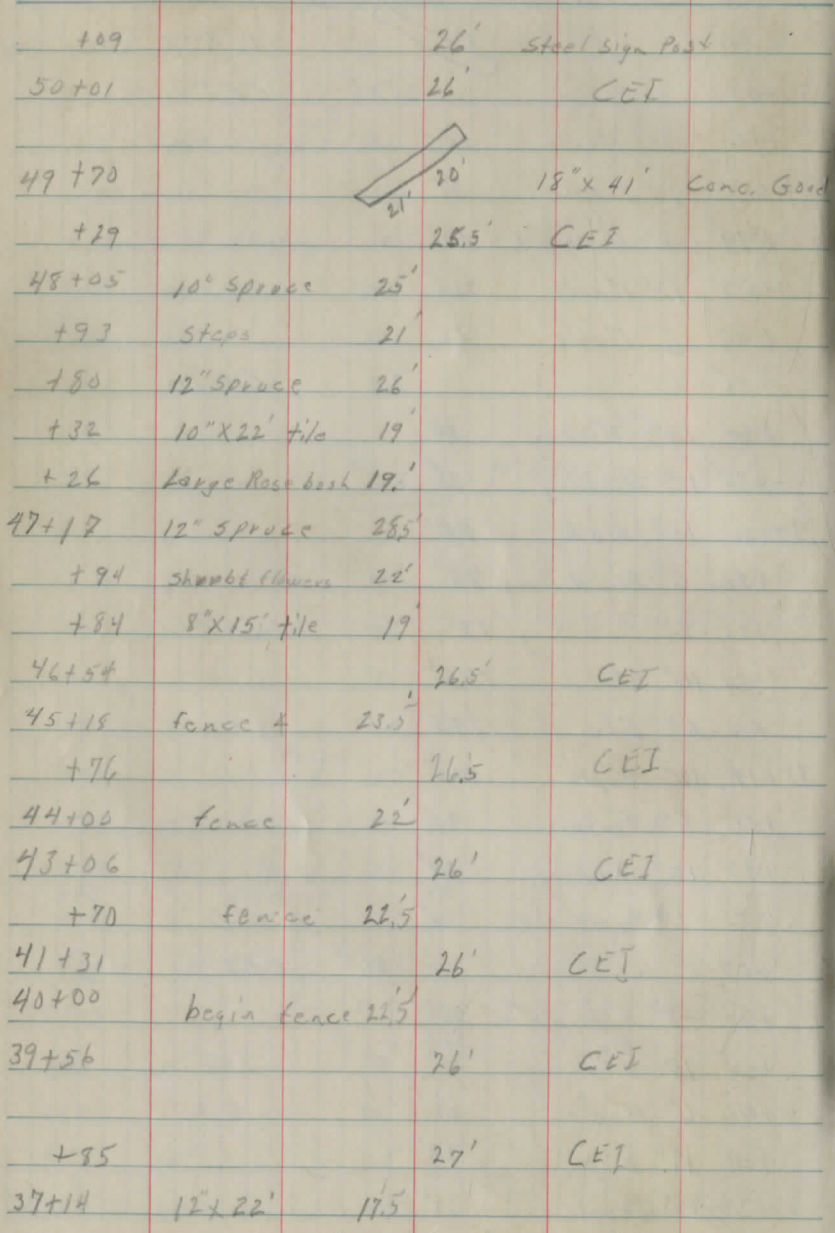 +09 26' Steel Sign Post
50+01 26' CEI
49+70 21' 20' 18"X 41' Conc. Good
+29 25.5' CEI
48+05 10" Spruce 25'
+93 Steps 21'
+80 12" Spruce 26'
+32 10"X22' tile 19'
+26 Large Rose bush 19.'
47+17 12" Spruce 28.5'
+94 flowers 22'
+84 8"X15' tile 19'
46+54 26.5' CEI
45+18 fence 23.5'
+76 26.5 CEI
44+00 fence 22'
43+06 26' CEI
+70 fence 22.5'
41+31 26' CEI
40+00 begin fence 22.5'
39+56 26' CEI
+85 27' CEI
37+14 12"x 22' 17.5'